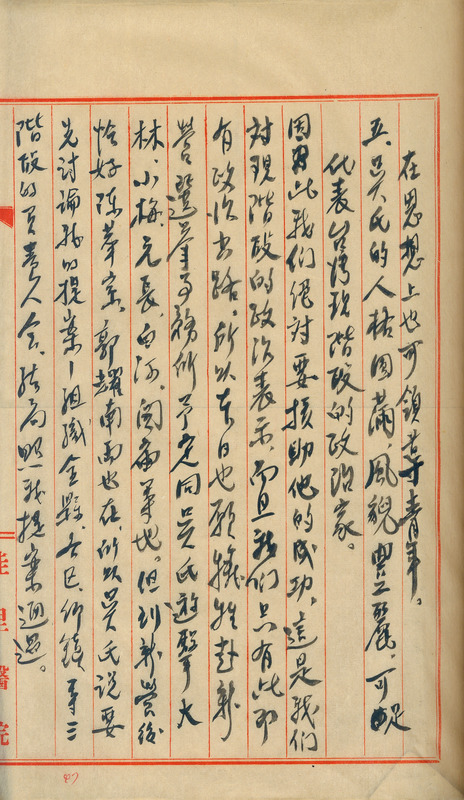 在思想上也可領導青年。
五、吳氏的人格圓滿風貌豐麗，可足
代表台灣現階段的政治家。
因為此我们絕對要援助他的成功。這是我们
対現階段的政治表示，而且我们只有此即
有政治出路。所以本日也願犠牲赴新
營選挙事務所予定同吳氏遊擊大
林、小梅、元長、白河、関廟等地。但到新營後
恰好陳華宗、郭耀南両也在，所以吳氏説要
先討論我的提案－組織全縣、各区、鄉鎮、第三
階段的負責人会，結局照我提案通過。
醫院